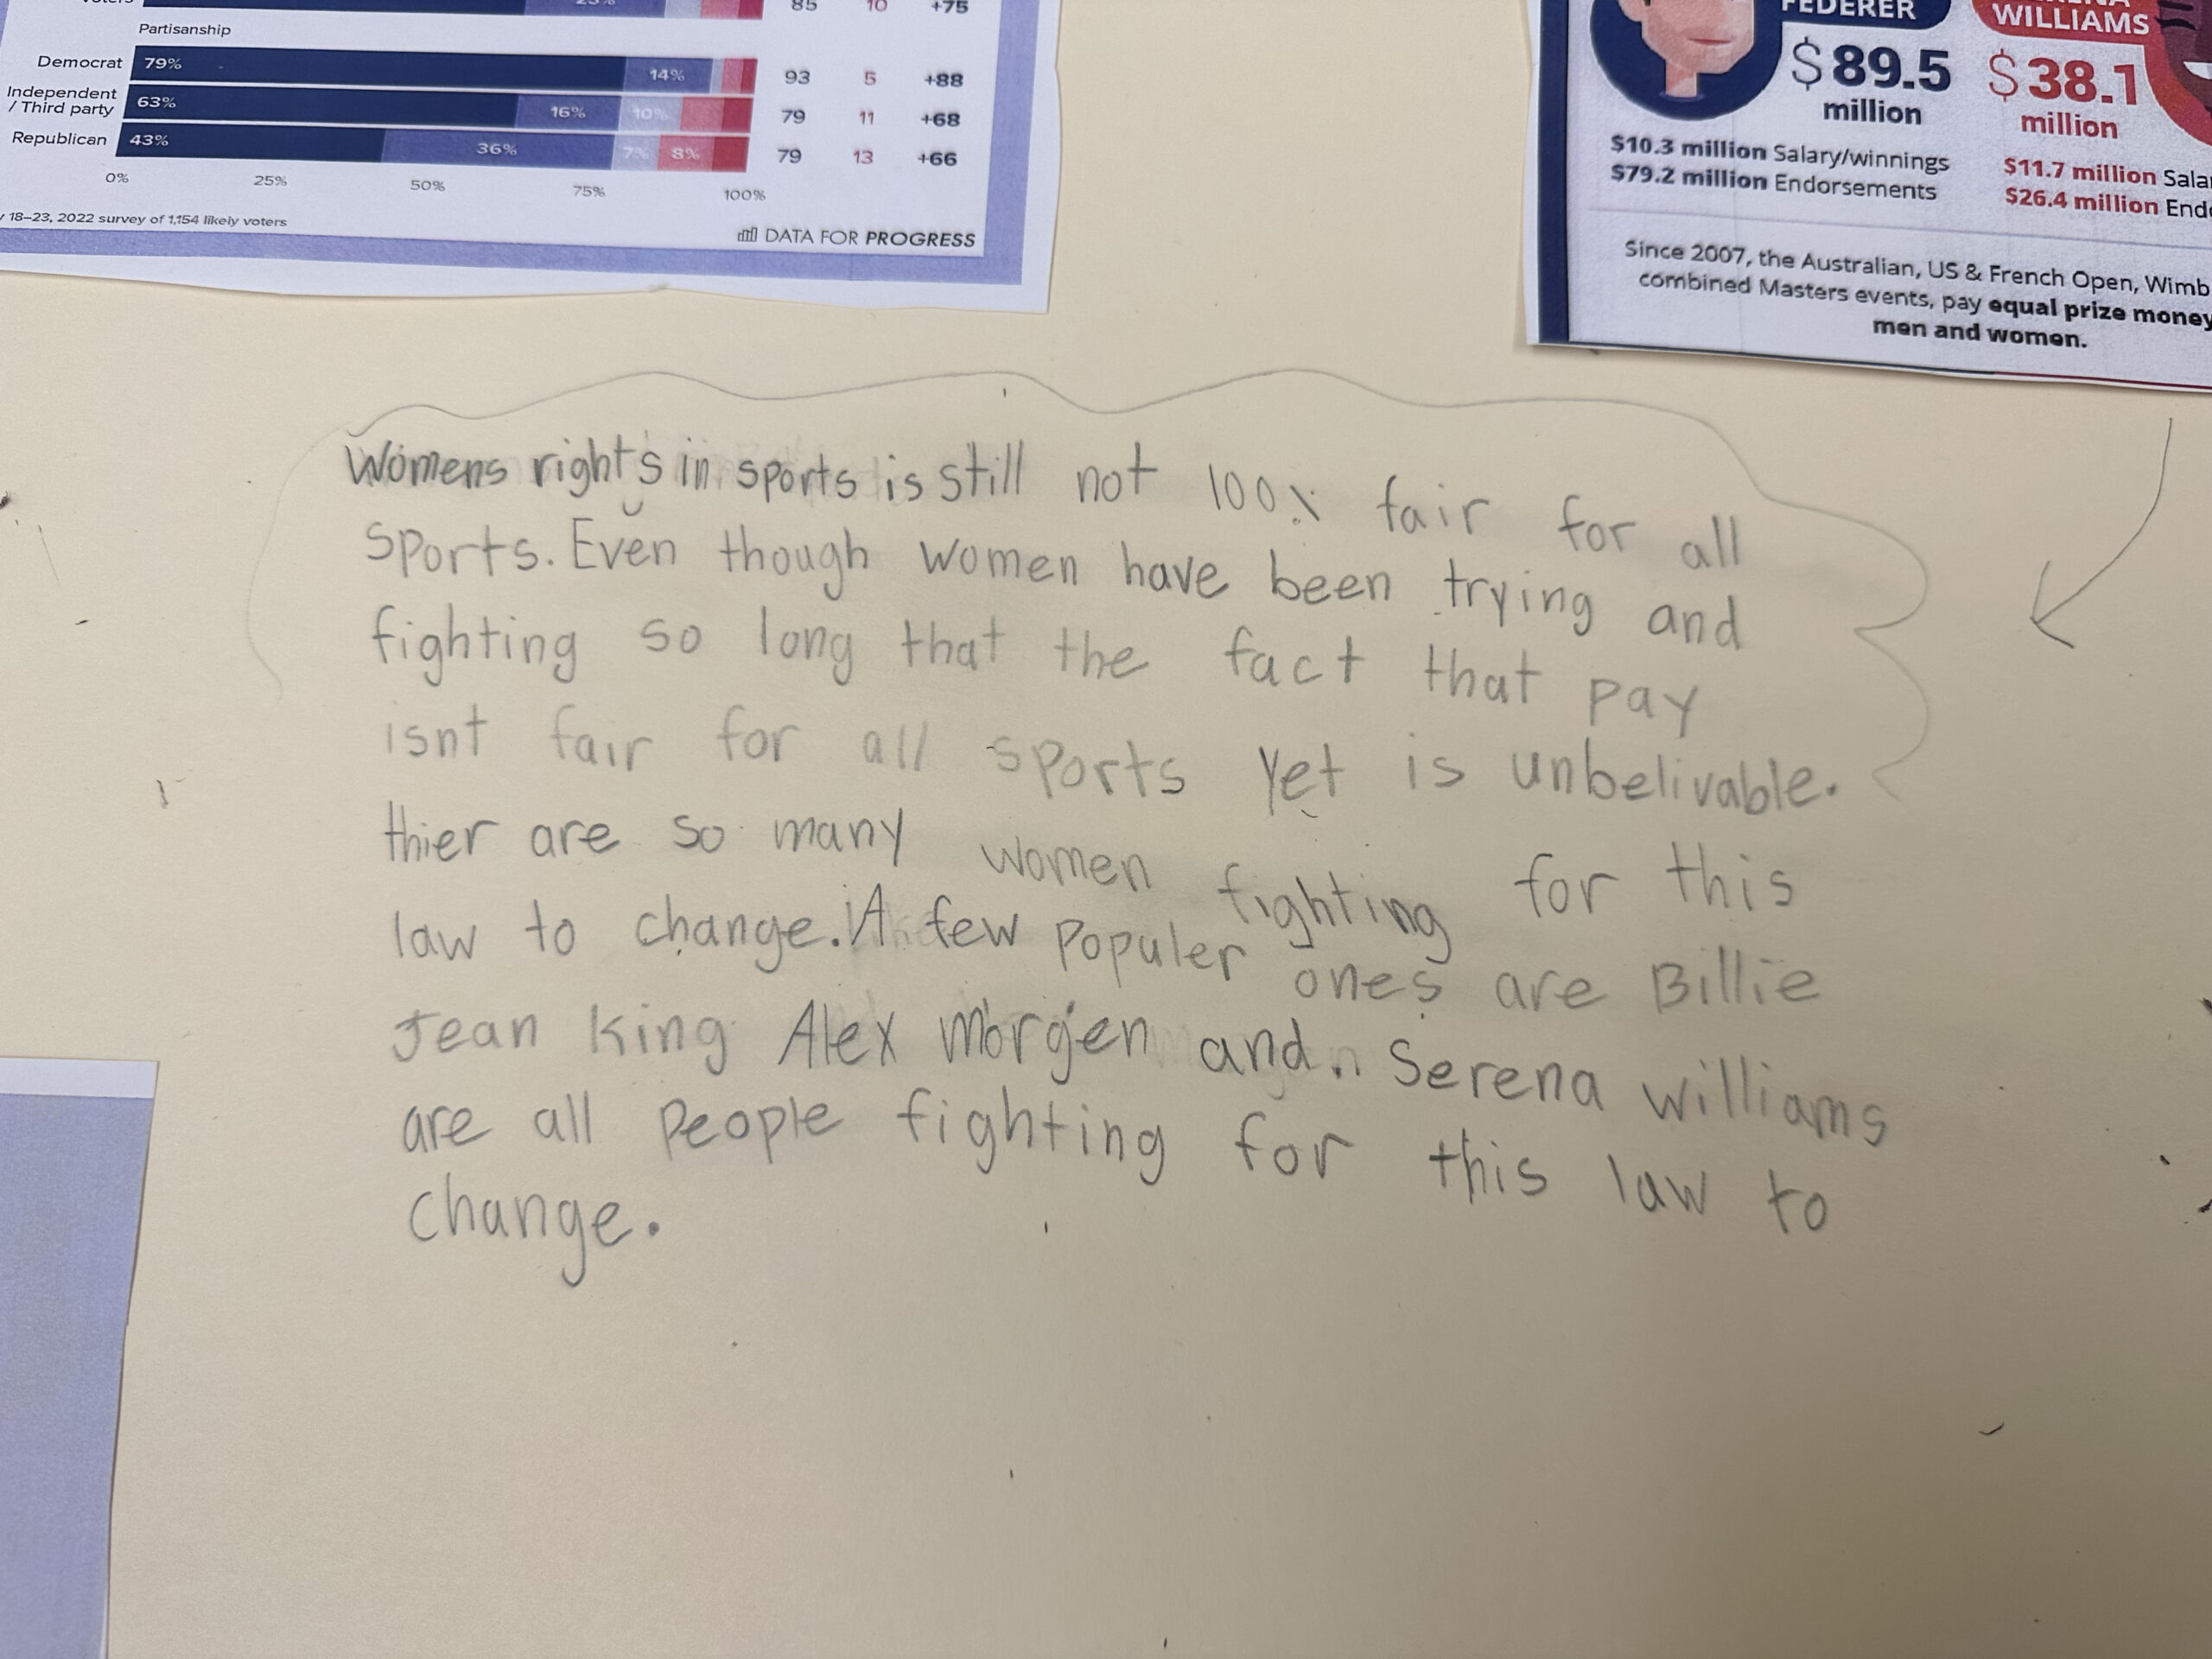 85 10 +75
Partisanship
Democrat 79% 14% 93 5 +88
Independent
/ Third party 63% 16% 10% 79 11 +68
Republican 43% 36% 7% 8% 79 13 +66
0% 25% 50% 75% 100%
18–23, 2022 survey of 1,154 likely voters
DATA FOR PROGRESS
FEDERER
WILLIAMS
$89.5
million
$38.1
million
$10.3 million Salary/winnings
$79.2 million Endorsements
$11.7 million
$26.4 million
Since 2007, the Australian, US & French Open,
combined Masters events, pay equal prize money
men and women.
Womens rights in sports is still not 100% fair for all
sports. Even though women have been trying and
fighting so long that the fact that pay
isnt fair for all sports yet is unbelivable.
thier are so many women fighting for this
law to change. A few populer ones are Billie
Jean King Alex Morgen and. Serena williams
are all people fighting for this law to
change.